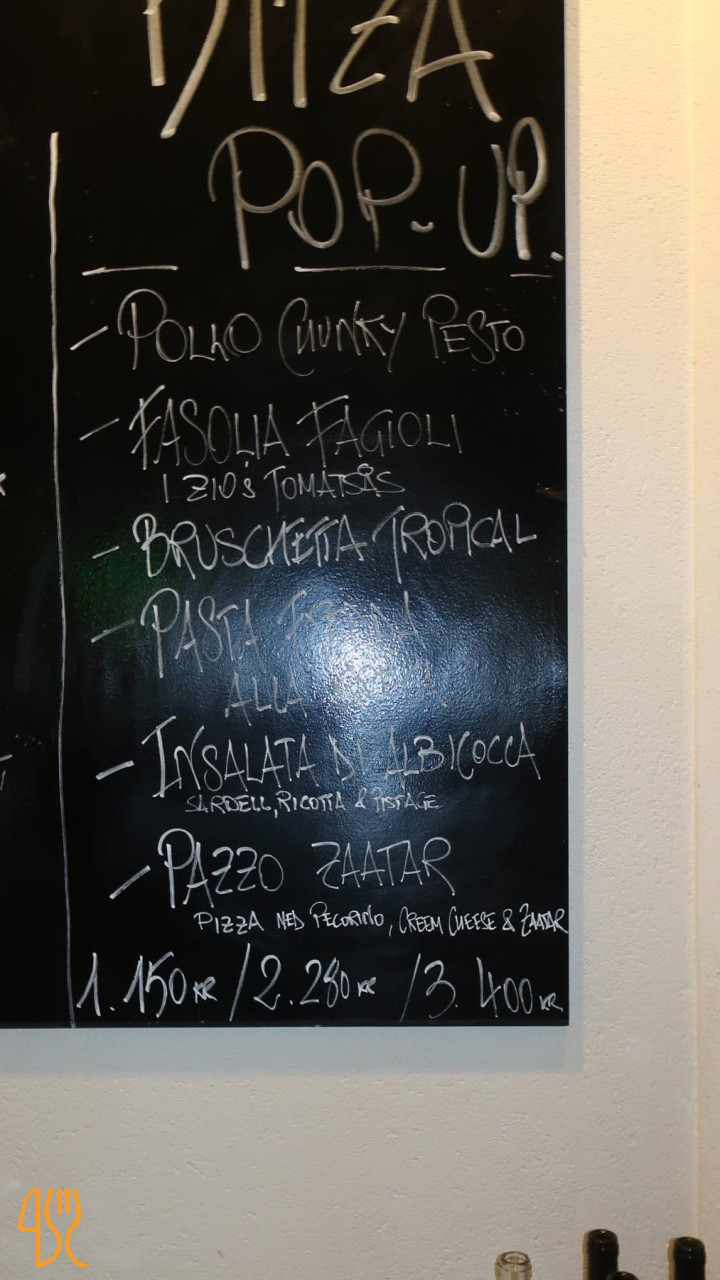 POP-UP.
- POLLO CHUNKY PESTO
- FASOLIA FAGIOLI
I ZIO's TOMATSÅS
- BRUSCHETTA TROPICAL
- PASTA
ALLA
- INSALATA DI ALBICOCCA
SARDELL, RICOTTA & PISTAGE
- PAZZO ZAATAR
PIZZA MED PECORINO, CREEM CHEESE & ZAATAR
1. 150 KR / 2. 280 KR / 3. 400 KR